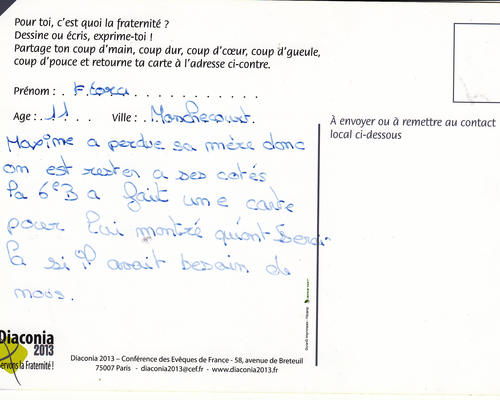 Pour toi, c'est quoi la fraternité ?
Dessine ou écris, exprime-toi !
Partage ton coup d'main, coup dur, coup d'cœur, coup d'gueule,
coup d'pouce et retourne ta carte à l'adresse ci-contre.
Prénom :
Age : 11 Ville : Manchecourt.
À envoyer ou à remettre au contact
local ci-dessous
Maxime a perdue sa mère donc
on est rester a ses cotés
la 6°B a fait une carte
pour lui montré qu'ont serai
la si il avait besoin de
nous.
Diaconia
2013
Servons la Fraternité !
Diaconia 2013 – Conférence des Evêques de France - 58, avenue de Breteuil
75007 Paris - diaconia2013@cef.fr - www.diaconia2013.fr